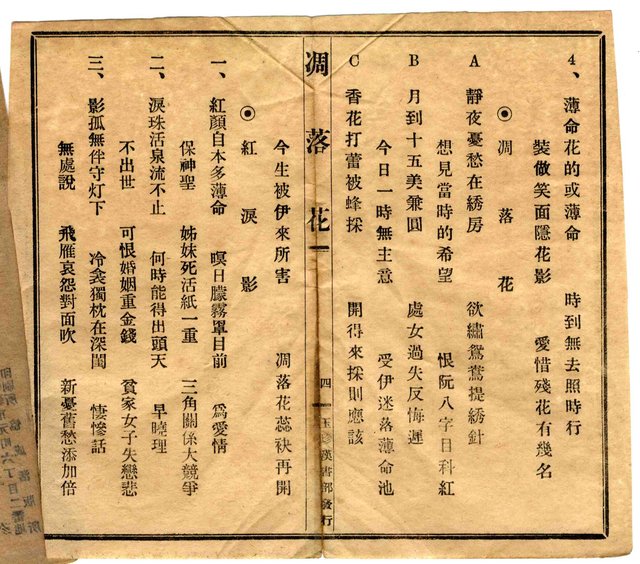 4、薄命花的或薄命　時到無去照時行
裝做笑面隱花影　愛惜殘花有幾名
◉凋落花
A　靜夜憂愁在綉房　欲繡鴛鴦提綉針
想見當時的希望　恨阮八字日科紅
B　月到十五美兼圓　處女過失反悔遲
今日一時無主意　受伊迷落薄命池
C　香花打蕾被蜂採　開得來採則應該
凋落花　四　玉珍漢書部發行
今生被伊來所害　凋落花蕊袂再開
◉紅淚影
一、紅顏自本多薄命　暝日朦霧罩目前　為愛情
保神聖　姊妹死活紙一重　三角關係大競爭
二、淚珠活泉流不止　何時能得出頭天　早曉理
不出世　可恨婚姻重金錢　貧家女子失戀悲
三、影孤無伴守灯下　冷衾獨枕在深閨　悽慘話
無處說　飛雁哀怨對面吹　新憂舊愁添加倍